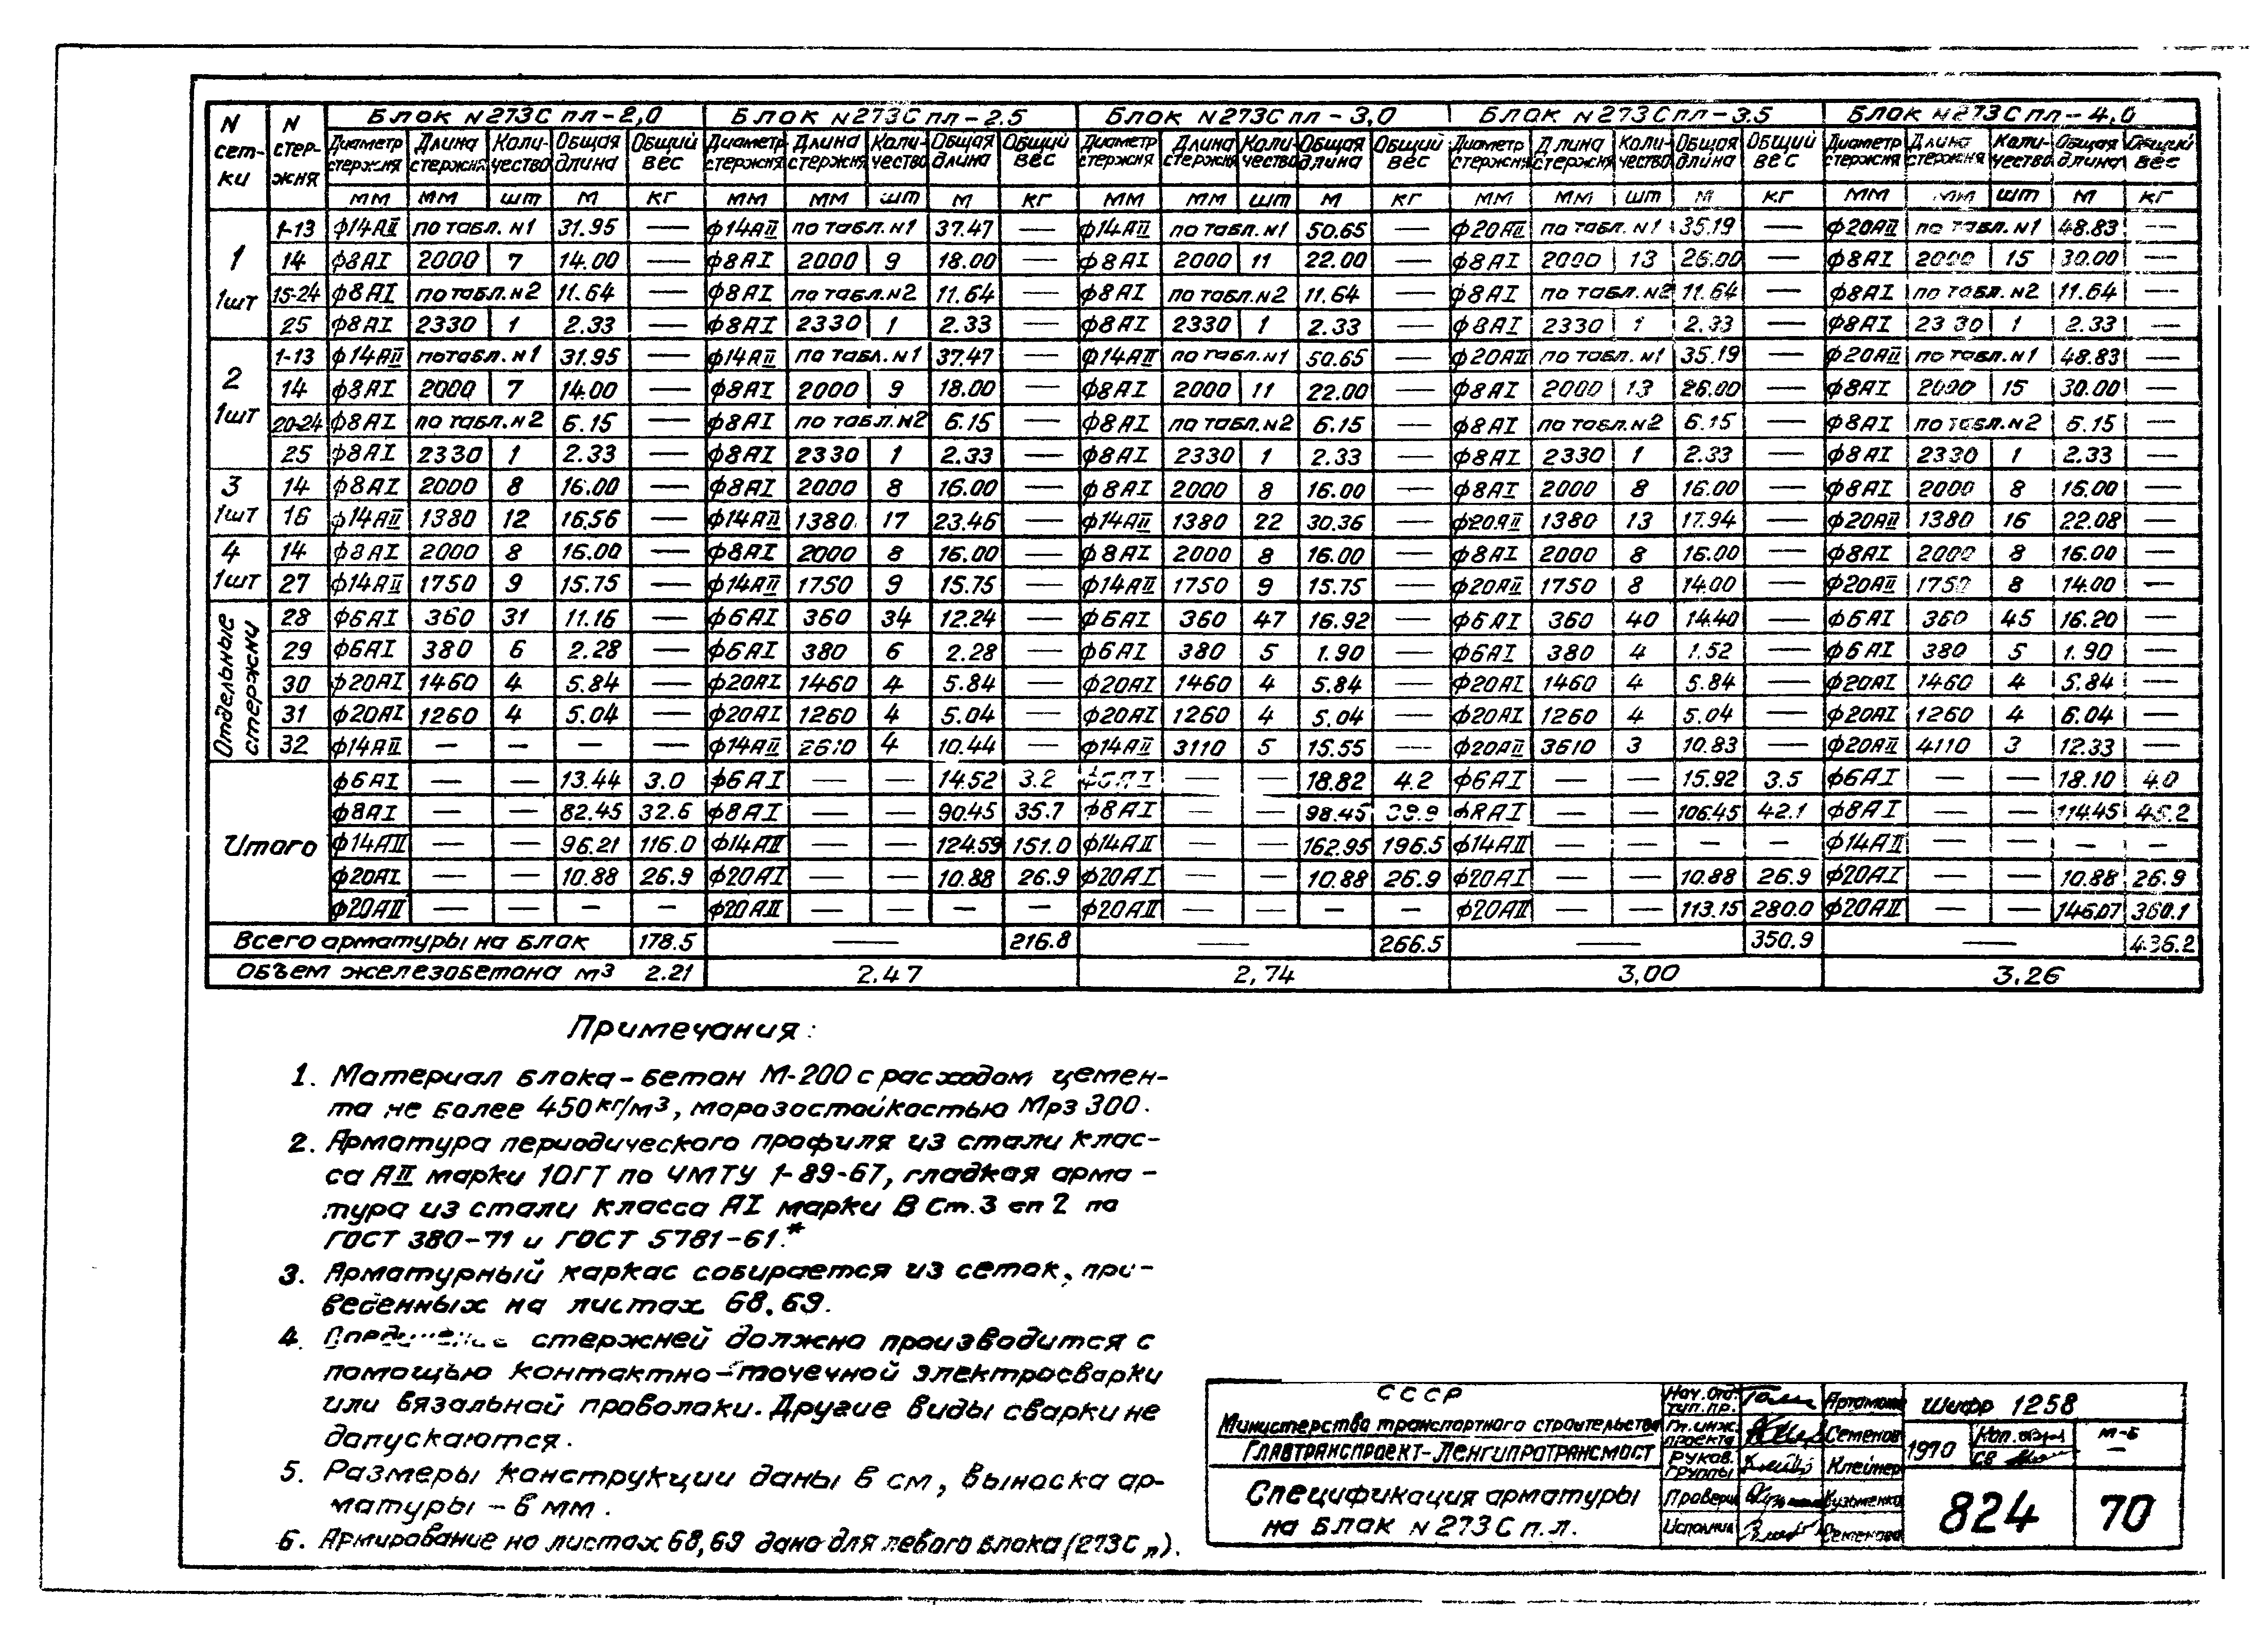 N сет-ки | N стер-жня | Блок N273С пл-2,0 | Блок N273С пл-2.5 | Блок N273С пл-3,0 | Блок N273С пл-3.5 | Блок N273С пл-4,0
Диаметр стержня | Длина стержня | Коли-чество | Общая длина | Общий вес | Диаметр стержня | Длина стержня | Коли-чество | Общая длина | Общий вес | Диаметр стержня | Длина стержня | Коли-чество | Общая длина | Общий вес | Диаметр стержня | Длина стержня | Коли-чество | Общая длина | Общий вес | Диаметр стержня | Длина стержня | Коли-чество | Общая длина | Общий вес
мм | мм | шт | м | кг | мм | мм | шт | м | кг | мм | мм | шт | м | кг | мм | мм | шт | м | кг | мм | мм | шт | м | кг
1 1шт | 1-13 | ф14АII | по табл. N1 | 31.95 | — | ф14АII | по табл. N1 | 37.47 | — | ф14АII | по табл. N1 | 50.65 | — | ф20АII | по табл. N1 | 35.19 | — | ф20АII | по табл. N1 | 48.83 | —
14 | ф8АI | 2000 | 7 | 14.00 | — | ф8АI | 2000 | 9 | 18.00 | — | ф8АI | 2000 | 11 | 22.00 | — | ф8АI | 2000 | 13 | 26.00 | — | ф8АI | 2000 | 15 | 30.00 | —
15-24 | ф8АI | по табл. N2 | 11.64 | — | ф8АI | по табл. N2 | 11.64 | — | ф8АI | по табл. N2 | 11.64 | — | ф8АI | по табл. N2 | 11.64 | — | ф8АI | по табл. N2 | 11.64 | —
25 | ф8АI | 2330 | 1 | 2.33 | — | ф8АI | 2330 | 1 | 2.33 | — | ф8АI | 2330 | 1 | 2.33 | — | ф8АI | 2330 | 1 | 2.33 | — | ф8АI | 2330 | 1 | 2.33 | —
2 1шт | 1-13 | ф14АII | по табл. N1 | 31.95 | — | ф14АII | по табл. N1 | 37.47 | — | ф14АII | по табл. N1 | 50.65 | — | ф20АII | по табл. N1 | 35.19 | — | ф20АII | по табл. N1 | 48.83 | —
14 | ф8АI | 2000 | 7 | 14.00 | — | ф8АI | 2000 | 9 | 18.00 | — | ф8АI | 2000 | 11 | 22.00 | — | ф8АI | 2000 | 13 | 26.00 | — | ф8АI | 2000 | 15 | 30.00 | —
20-24 | ф8АI | по табл. N2 | 6.15 | — | ф8АI | по табл. N2 | 6.15 | — | ф8АI | по табл. N2 | 6.15 | — | ф8АI | по табл. N2 | 6.15 | — | ф8АI | по табл. N2 | 6.15 | —
25 | ф8АI | 2330 | 1 | 2.33 | — | ф8АI | 2330 | 1 | 2.33 | — | ф8АI | 2330 | 1 | 2.33 | — | ф8АI | 2330 | 1 | 2.33 | — | ф8АI | 2330 | 1 | 2.33 | —
3 1шт | 14 | ф8АI | 2000 | 8 | 16.00 | — | ф8АI | 2000 | 8 | 16.00 | — | ф8АI | 2000 | 8 | 16.00 | — | ф8АI | 2000 | 8 | 16.00 | — | ф8АI | 2000 | 8 | 16.00 | —
16 | ф14АII | 1380 | 12 | 16.56 | — | ф14АII | 1380 | 17 | 23.46 | — | ф14АII | 1380 | 22 | 30.36 | — | ф20АII | 1380 | 13 | 17.94 | — | ф20АII | 1380 | 16 | 22.08 | —
4 1шт | 14 | ф8АI | 2000 | 8 | 16.00 | — | ф8АI | 2000 | 8 | 16.00 | — | ф8АI | 2000 | 8 | 16.00 | — | ф8АI | 2000 | 8 | 16.00 | — | ф8АI | 2000 | 8 | 16.00 | —
27 | ф14АII | 1750 | 9 | 15.75 | — | ф14АII | 1750 | 9 | 15.75 | — | ф14АII | 1750 | 9 | 15.75 | — | ф20АII | 1750 | 8 | 14.00 | — | ф20АII | 1750 | 8 | 14.00 | —
Отдельные стержни | 28 | ф6АI | 360 | 31 | 11.16 | — | ф6АI | 360 | 34 | 12.24 | — | ф6АI | 360 | 47 | 16.92 | — | ф6АI | 360 | 40 | 14.40 | — | ф6АI | 360 | 45 | 16.20 | —
29 | ф6АI | 380 | 6 | 2.28 | — | ф6АI | 380 | 6 | 2.28 | — | ф6АI | 380 | 5 | 1.90 | — | ф6АI | 380 | 4 | 1.52 | — | ф6АI | 380 | 5 | 1.90 | —
30 | ф20АI | 1460 | 4 | 5.84 | — | ф20АI | 1460 | 4 | 5.84 | — | ф20АI | 1460 | 4 | 5.84 | — | ф20АI | 1460 | 4 | 5.84 | — | ф20АI | 1460 | 4 | 5.84 | —
31 | ф20АI | 1260 | 4 | 5.04 | — | ф20АI | 1260 | 4 | 5.04 | — | ф20АI | 1260 | 4 | 5.04 | — | ф20АI | 1260 | 4 | 5.04 | — | ф20АI | 1260 | 4 | 6.04 | —
32 | ф14АII | — | — | — | — | ф14АII | 2610 | 4 | 10.44 | — | ф14АII | 3110 | 5 | 15.55 | — | ф20АII | 3610 | 3 | 10.83 | — | ф20АII | 4110 | 3 | 12.33 | —
Итого | ф6АI | — | — | 13.44 | 3.0 | ф6АI | — | — | 14.52 | 3.2 | ф6АI | — | — | 18.82 | 4.2 | ф6АI | — | — | 15.92 | 3.5 | ф6АI | — | — | 18.10 | 4.0
ф8АI | — | — | 82.45 | 32.6 | ф8АI | — | — | 90.45 | 35.7 | ф8АI | — | — | 98.45 | 38.9 | ф8АI | — | — | 106.45 | 42.1 | ф8АI | — | — | 114.45 | 45.2
ф14АII | — | — | 96.21 | 116.0 | ф14АII | — | — | 124.59 | 151.0 | ф14АII | — | — | 162.95 | 196.5 | ф14АII | — | — | — | — | ф14АII | — | — | — | —
ф20АI | — | — | 10.88 | 26.9 | ф20АI | — | — | 10.88 | 26.9 | ф20АI | — | — | 10.88 | 26.9 | ф20АI | — | — | 10.88 | 26.9 | ф20АI | — | — | 10.88 | 26.9
ф20АII | — | — | — | — | ф20АII | — | — | — | — | ф20АII | — | — | — | — | ф20АII | — | — | 113.15 | 280.0 | ф20АII | — | — | 146.07 | 360.1
Всего арматуры на блок | 178.5 | — | 216.8 | — | 266.5 | — | 350.9 | — | 436.2
Объем железобетона м³ 2.21 | 2.47 | 2,74 | 3,00 | 3.26
Примечания:
1. Материал блока – бетон М-200 с расходом цемен-
та не более 450кг/м³, морозостойкостью Мрз 300.
2. Арматура периодического профиля из стали клас-
са АII марки 10ГТ по ЧМТУ 1-89-67, гладкая арма-
тура из стали класса АI марки В Ст.3 сп 2 по
ГОСТ 380-71 и ГОСТ 5781-61.*
3. Арматурный каркас собирается из сеток, при-
веденных на листах 68,69.
4. стержней должно производится с
помощью контактно-точечной электросварки
или вязальной проволоки. Другие виды сварки не
допускаются.
5. Размеры конструкции даны в см, выноска ар-
матуры – в мм.
6. Армирование на листах 68,69 дано для левого блока (273С л).
СССР
Министерство транспортного строительства
Главтранспроект-Ленгипротрансмост
Спецификация арматуры
на блок N273С п.л.
Нач. отд. тип. пр. Артамонов
Гл. инж. проекта Семенов
Руков. группы Клейнер
Проверил Кузьменко
Исполнил Семенова
Шифр 1258
1970
м-б
—
824
70